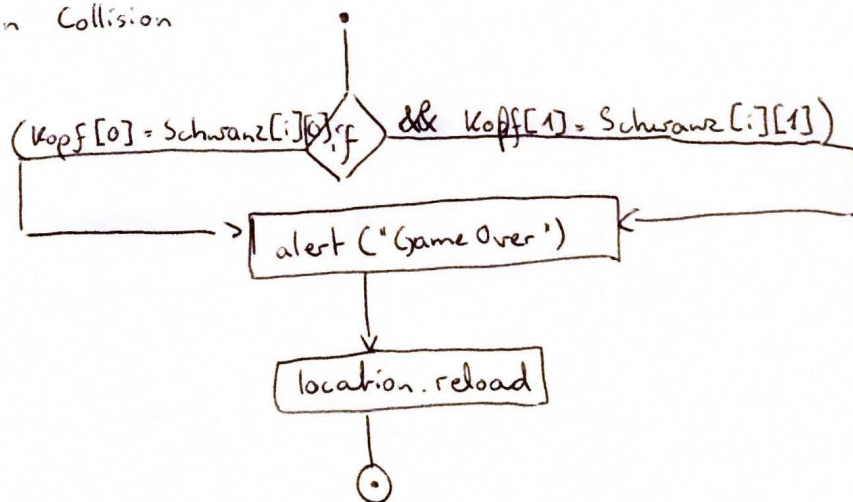 n Collision
(Kopf[0] = Schwanz[i][0] if && Kopf[1] = Schwanz[i][1])
alert ("GameOver")
location.reload